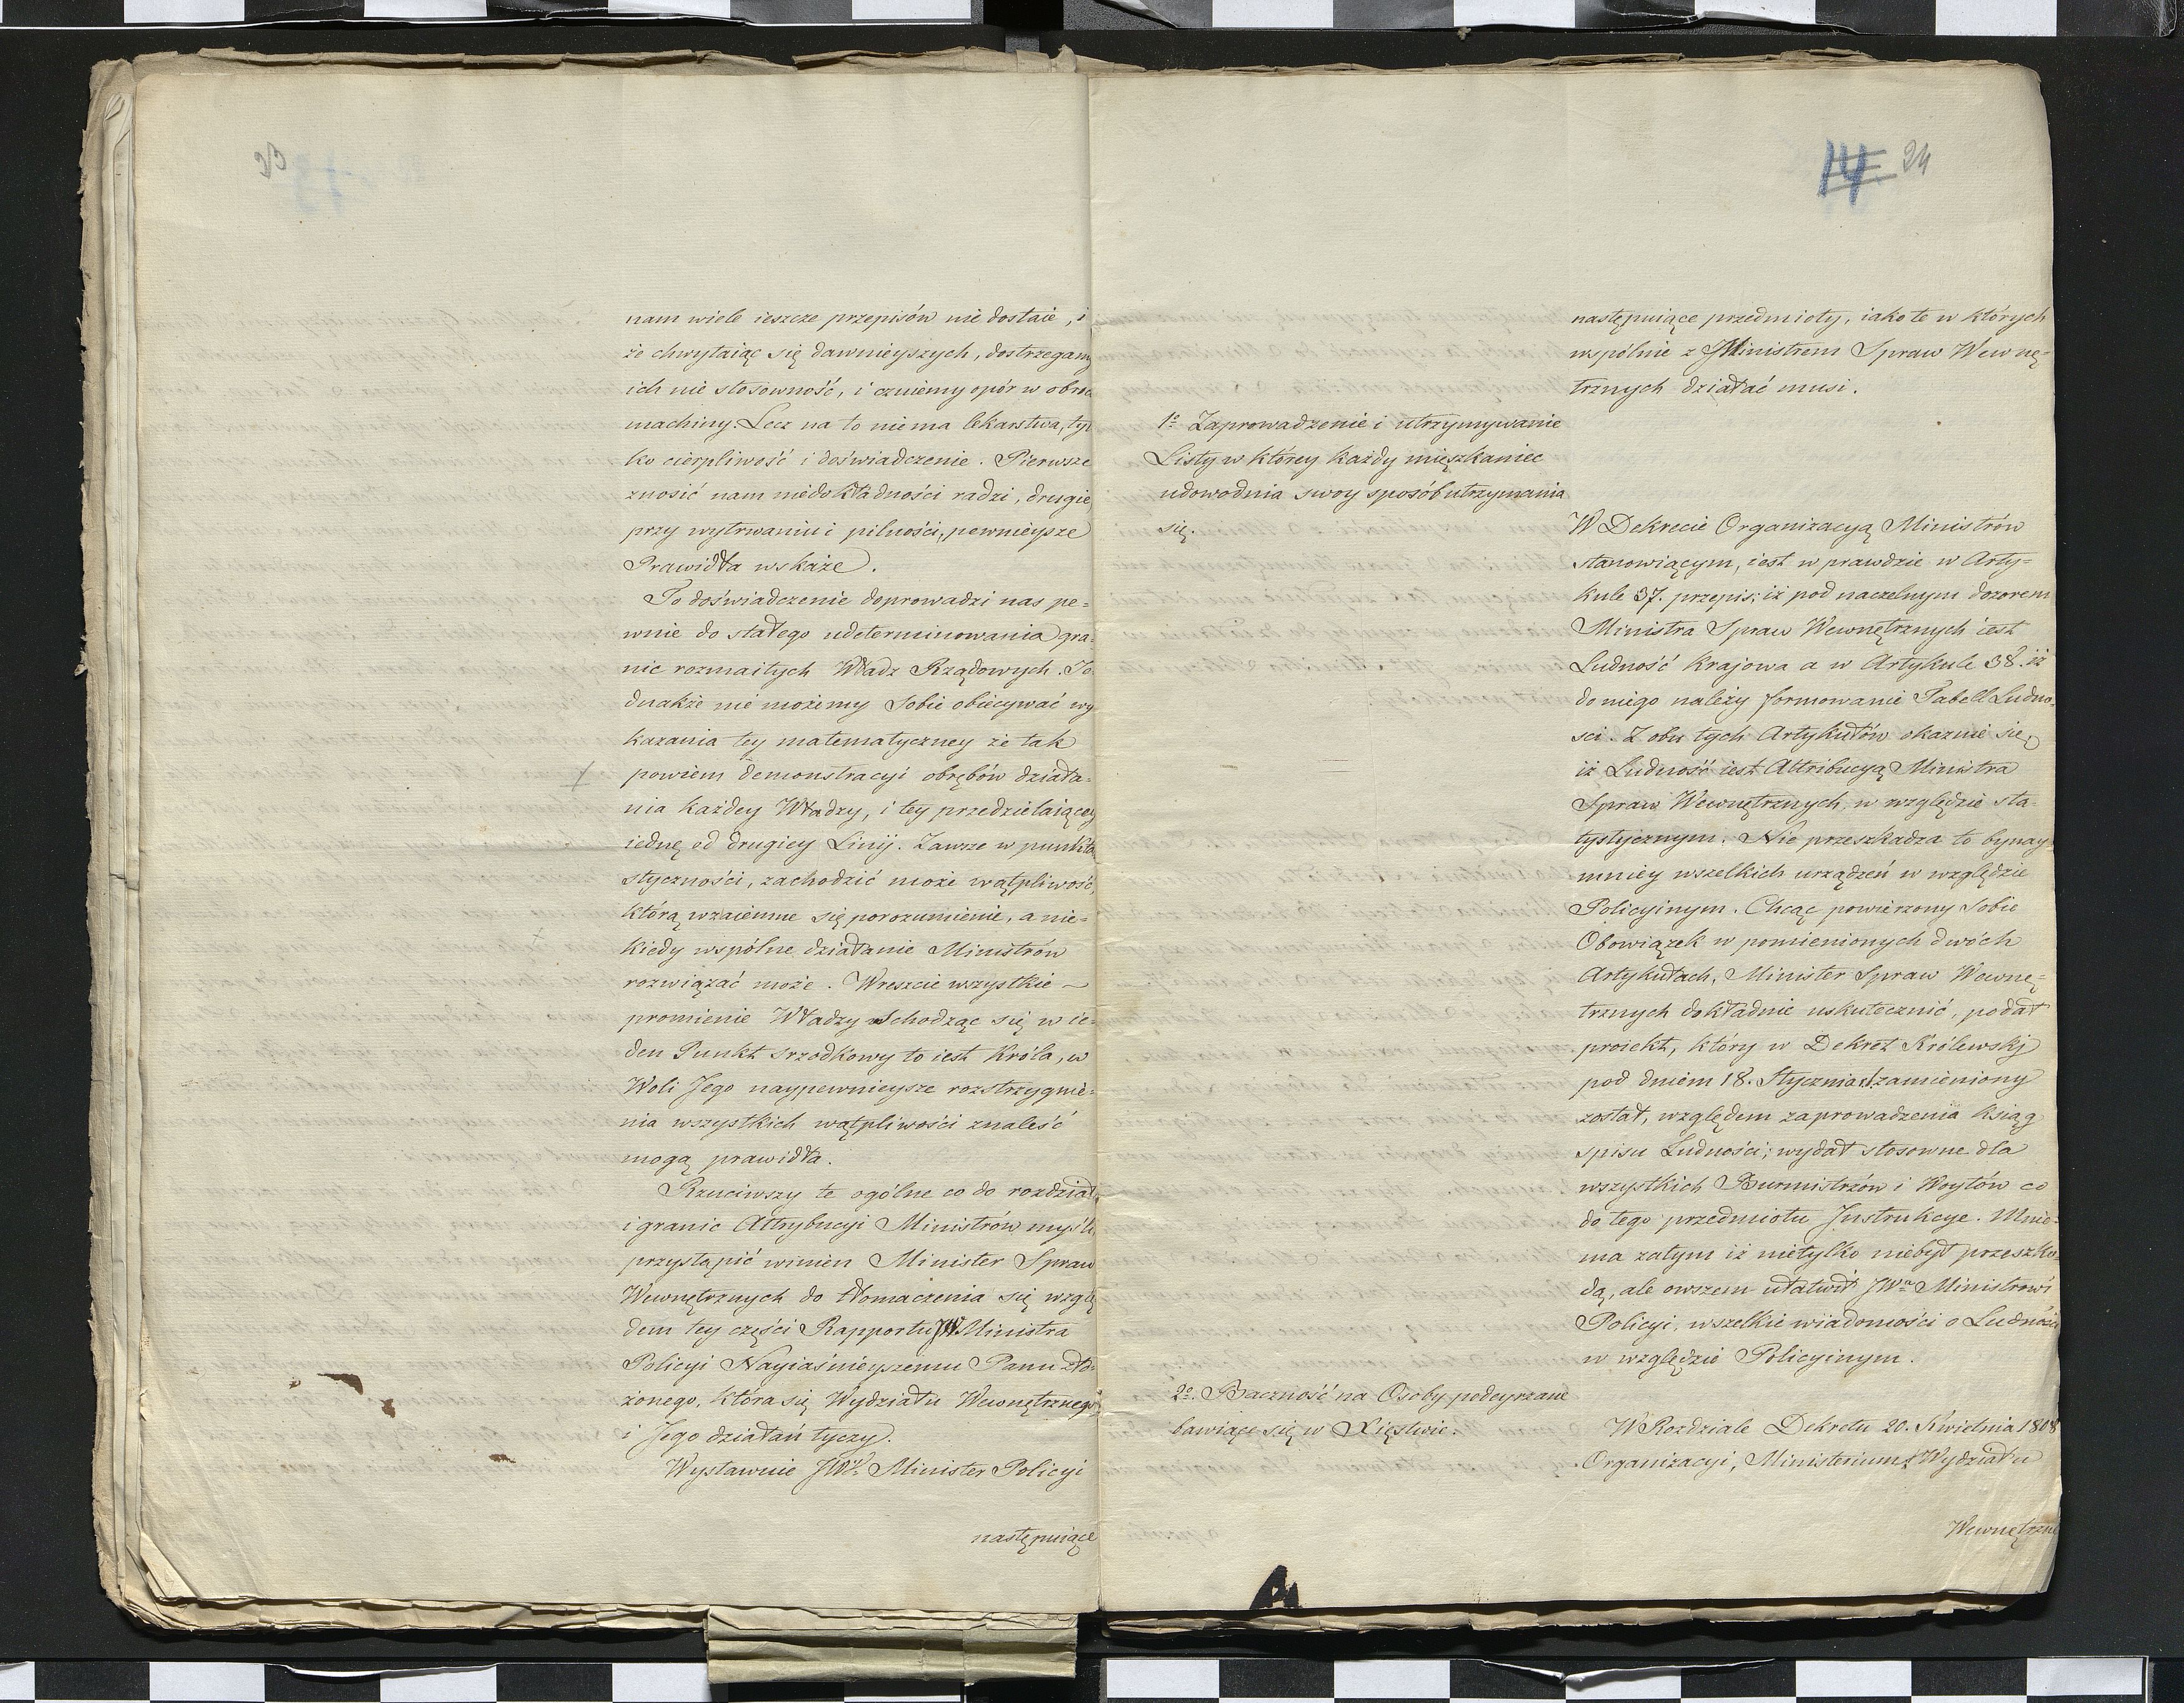 23
nam wiele ieszcze przepisów nie dostaie, i
że chwytaiąc się dawnieyszych, dostrzegamy
ich nie stosowność, i czuiemy opór w obro
machiny. Lecz na to niema lekarstwa, tyl
ko cierpliwość i doświadczenie. Pierwsze
znosić nam niedokładności radzi, drugie
przy wytrwaniu i pilności, pewnieysze
Prawidła wskaże.
To doświadczenie doprowadzi nas pe=
wnie do stałego udeterminowania gra=
nic rozmaitych Władz Rządowych. Je
dnakże nie możemy Sobie obiecywać wy
kazania tey matematyczney że tak
powiem demonstracyi obrębów działa=
nia każdey Władzy, i tey przedzielaiącey
iednę od drugiey Linij. Zawsze w punkta
styczności, zachodzić może wątpliwość,
którą wzaiemne się porozumienie, a nie=
kiedy wspólne działanie Ministrów
rozwiązać może. Wreszcie wszystkie
promienie Władzy schodząc się w ie=
den Punkt srzodkowy to iest Króla, w
Woli Jego naypewnieysze rozstrzygnie=
nia wszystkich wątpliwości znaleść
mogą prawidła.
Rzuciwszy te ogólne co do rozdziału
i granic Attrybucyi Ministrów myśli,
przystąpić winien Minister Spraw
Wewnętrznych do tłomaczenia się wzglę
dem tey części Rapportu JW Ministra
Policyi Nayiaśnieyszemu Panu zło=
żonego, która się Wydziału Wewnętrznego
i Jego działań tyczy.
Wystawuie JW. Minister Policyi
następuiące
14 24
następuiące przedmioty, iako te w których
wspólnie z Ministrem Spraw Wewnę=
trznych działać musi.
1o Zaprowadzenie i utrzymywanie
Listy w którey każdy mięszkaniec
udowodnia swoy sposób utrzymania
się.
W Dekrecie Organizacyą Ministrów
stanowiącym, iest w prawdzie w Arty=
kule 37. przepis; iż pod naczelnym dozorem
Ministra Spraw Wewnętrznych iest
Ludność Krajowa a w Artykule 38. iż
do niego należy formowanie Tabell Ludno=
sci. Z obu tych Artykułów okazuie się,
iż Ludność iest Attribucyą Ministra
Spraw Wewnętrznych w względzie sta=
tystycznym. Nie przeszkadza to bynay
mniey wszelkich urządzeń w względzie
Policyinym. Chcąc powierzony Sobie
Obowiązek w pomienionych dwóch
Artykułach, Minister Spraw Wewnę=
trznych dokładnie uskutecznić, podał
proiekt, który w Dekret Królewskj
pod dniem 18. Stycznia zamieniony
został, względem zaprowadzenia ksiąg
spisu Ludności; wydał stosowne dla
wszystkich Burmistrzów i Woytów co
do tego przedmiotu Instrukcye. Mnie=
ma zatym iż nietylko niebył przeszko=
dą, ale owszem ułatwił JW. Ministrowi
Policyi, wszelkie wiadomości o Ludności
w względzie Policyinym.
2o. Baczność na Osoby podeyrzane
bawiące się w Xięstwie.
W Rozdziale Dekretu 20. Kwietnia 1808
Organizacyi, Ministerium Wydziału
Wewnętrzne